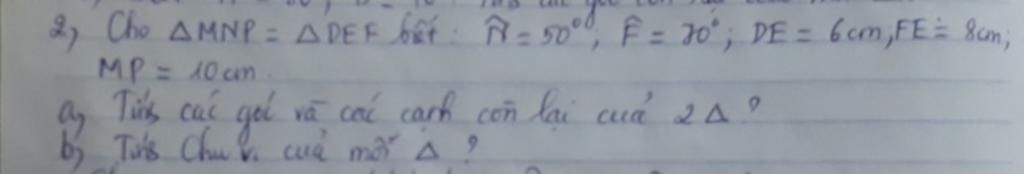 2, Cho △MNP = △DEF biết: N̂ = 50°; F̂ = 70°; DE = 6cm, FE = 8cm;
MP = 10cm.
a, Tính các góc và các cạnh còn lại của 2 △?
b, Tính Chu vi của mỗi △?